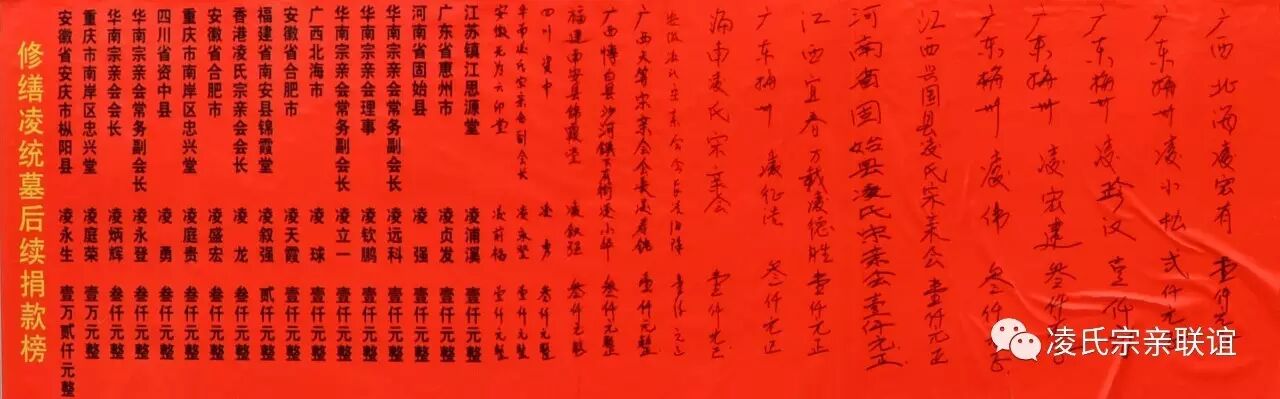 修缮凌统墓后续捐款榜
安徽省安庆市枞阳县 凌永生 壹万贰仟元整
重庆市南岸区忠兴堂 凌庭荣 壹万元整
华南宗亲会会长 凌炳辉 叁仟元整
华南宗亲会常务副会长 凌永登 叁仟元整
四川省资中县 凌勇 叁仟元整
重庆市南岸区忠兴堂 凌庭贵 叁仟元整
安徽省合肥市 凌盛宏 叁仟元整
香港凌氏宗亲会会长 凌龙 叁仟元整
福建省南安县锦霞堂 凌叙强 贰仟元整
安徽省合肥市 凌天霞 壹仟元整
广西北海市 凌球 壹仟元整
华南宗亲会常务副会长 凌立一 壹仟元整
华南宗亲会理事 凌钦鹏 壹仟元整
华南宗亲会常务副会长 凌远科 壹仟元整
河南省固始县 凌强 壹仟元整
广东省惠州市 凌贞发 壹仟元整
江苏镇江思源堂 凌浦溪 壹仟元整
安徽无为六印堂 凌前福 壹仟元整
华南凌氏宗亲会副会长 凌永登 壹仟元整
四川资中 凌勇 叁仟元整
福建南安县锦霞堂 凌叙强 叁仟元整
广西博白县沙河镇 叁仟元整
广西天等宗亲会会长凌 壹仟元整
安徽凌氏宗亲会会长凌 壹仟元正
海南凌氏宗亲会 壹仟元正
广东梅州 凌征法 叁仟元正
江西宜春万载凌德胜 壹仟元正
河南省固始县凌氏宗亲会壹仟元正
江西兴国县凌氏宗亲会 壹仟元正
广东梅州 凌伟 叁仟
广东梅州 凌宏建 叁仟
广东梅州 凌珍汉 壹仟
广东梅州 凌小松 弍仟元
广西北海凌宏有 壹仟元
凌氏宗亲联谊